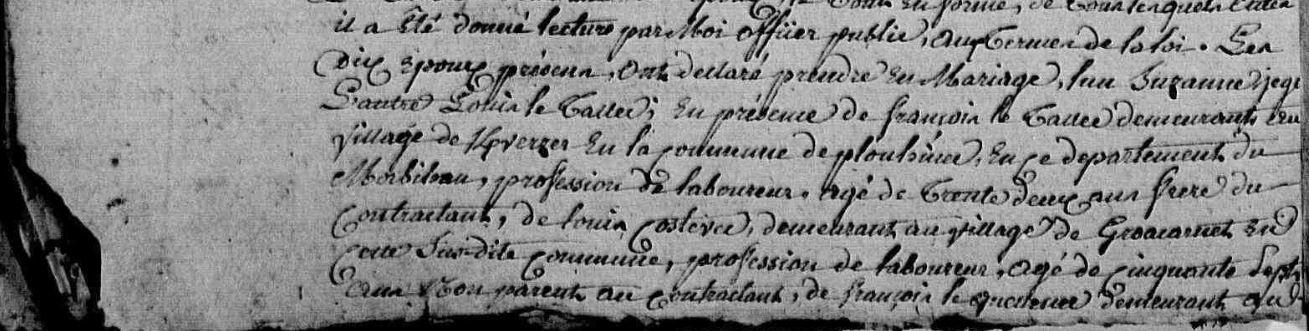 en forme, de tout
il a été donné lecture par Moi officier public, aux termes de la loi. Les
Dix Epoux présens, ont declaré prendre En Mariage, l'un Suzanne
L'autre Louis le Tallec; En présence de françois le Tallec demeurant en
village de Kpverzer En la commune de plouhinec, En ce departement du
Morbihan, profession de laboureur, agé de Trente deux ans frere du
Contractant, de louis postevec, demeurant au village de Groacarnet En
cette Susdite commune, profession de laboureur, agé de cinquante Sept
ans Non parent au contractant, de françois le demeurant au